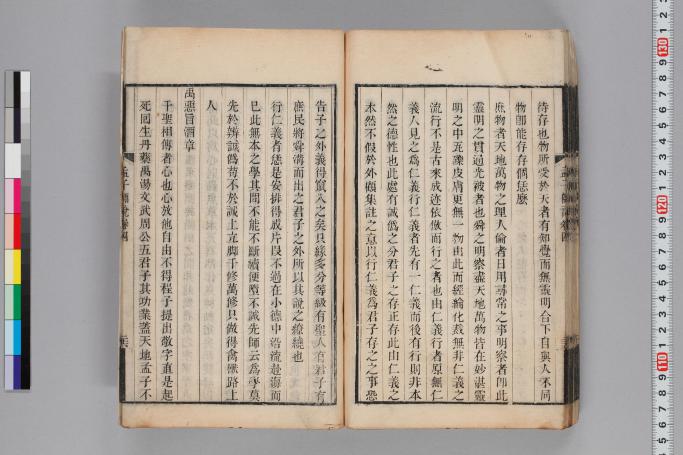 待存也物所受於天者有知覺而無靈明合下自與人不同
物卽能存存個恁麽
庶物者天地萬物之理人倫者日用尋常之事明察者卽此
靈明之貫通光被者也舜之明察盡天地萬物皆在妙湛靈
明之中五礫皮膚更無一物由此而經綸化裁無非仁義之
流行不是古來成迹依倣而行之者也由仁義行者原無仁
義人見之爲仁義行仁義者先有一仁義而後有行則非本
然之德性也此處有誠僞之分君子之存正存此由仁義之
未然不假於外頋集註之意以行仁義爲君子存之之事恐
告子之外義得竄入之矣只緣多分等級有聖人有君子有
庶民將舜溝而出之君子之外所以其說之繚繞也
行仁義者恁是安排得成片段不過在小德中沿流赴海而
已此無本之學其間不能不斷續便墮不誠先師云爲學莫
先於辨誠僞苟不於誠上立脚千修萬修只做得禽獸路上
人
禹惡旨酒章
千聖相傳者心也心放他自由不得程子提出敬字直是起
死回生丹藥禹湯文武周公五君子其功業蓋天地孟子不
孟子師說卷四